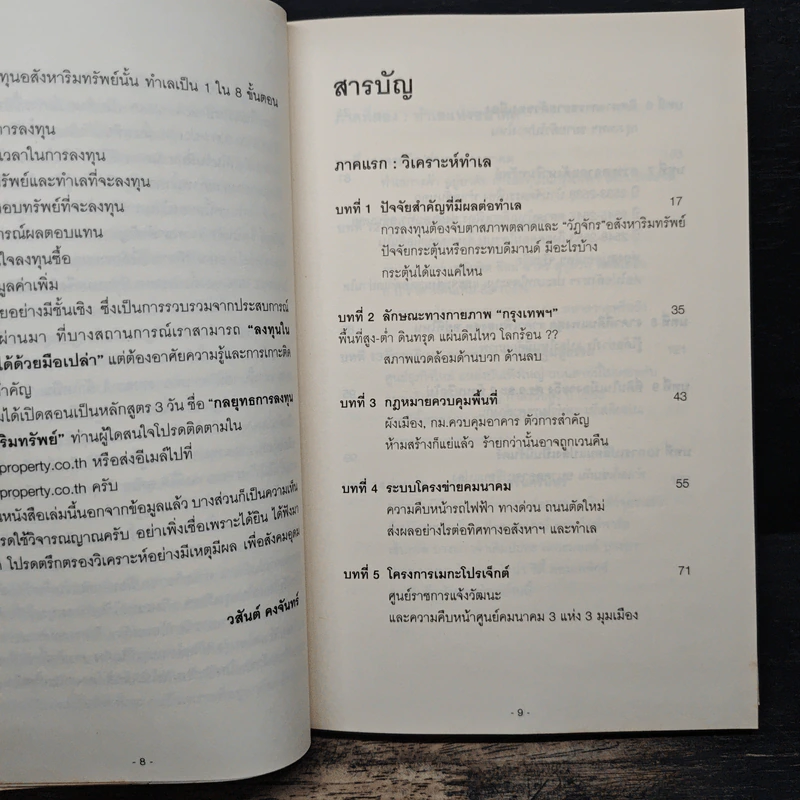 ทุนอสังหาริมทรัพย์นั้น ทำเลเป็น 1 ใน 8 ขั้นตอน
การลงทุน
เวลาในการลงทุน
รัพย์และทำเลที่จะลงทุน
อบทรัพย์ที่จะลงทุน
ารณ์ผลตอบแทน
ใจลงทุนซื้อ
มูลค่าเพิ่ม
ยอย่างมีชั้นเชิง ซึ่งเป็นการรวบรวมจากประสบการณ์
ผ่านมา ที่บางสถานการณ์เราสามารถ “ลงทุนใน
ได้ด้วยมือเปล่า” แต่ต้องอาศัยความรู้และการเกาะติด
สำคัญ
มได้เปิดสอนเป็นหลักสูตร 3 วัน ชื่อ “กลยุทธการลงทุน
ริมทรัพย์” ท่านผู้ใดสนใจโปรดติดตามใน
property.co.th หรือส่งอีเมล์ไปที่
property.co.th ครับ
นหนังสือเล่มนี้นอกจากข้อมูลแล้ว บางส่วนก็เป็นความเห็น
รดใช้วิจารณญาณครับ อย่าเพิ่งเชื่อเพราะได้ยิน ได้ฟังมา
โปรดตรึกตรองวิเคราะห์อย่างมีเหตุมีผล เพื่อสังคมอุดม
วสันต์ คงจันทร์
- 8 -
สารบัญ
ภาคแรก : วิเคราะห์ทำเล
บทที่ 1 ปัจจัยสำคัญที่มีผลต่อทำเล 17
การลงทุนต้องจับตาสภาพตลาดและ “วัฏจักร”อสังหาริมทรัพย์
ปัจจัยกระตุ้นหรือกระทบดีมานด์ มีอะไรบ้าง
กระตุ้นได้แรงแค่ไหน
บทที่ 2 ลักษณะทางกายภาพ “กรุงเทพฯ” 35
พื้นที่สูง-ต่ำ ดินทรุด แผ่นดินไหว โลกร้อน ??
สภาพแวดล้อมด้านบวก ด้านลบ
บทที่ 3 กฎหมายควบคุมพื้นที่ 43
ผังเมือง, กม.ควบคุมอาคาร ตัวการสำคัญ
ห้ามสร้างก็แย่แล้ว ร้ายกว่านั้นอาจถูกเวนคืน
บทที่ 4 ระบบโครงข่ายคมนาคม 55
ความคืบหน้ารถไฟฟ้า ทางด่วน ถนนตัดใหม่
ส่งผลอย่างไรต่อทิศทางอสังหาฯ และทำเล
บทที่ 5 โครงการเมกะโปรเจ็กต์ 71
ศูนย์ราชการแจ้งวัฒนะ
และความคืบหน้าศูนย์คมนาคม 3 แห่ง 3 มุมเมือง
- 9 -